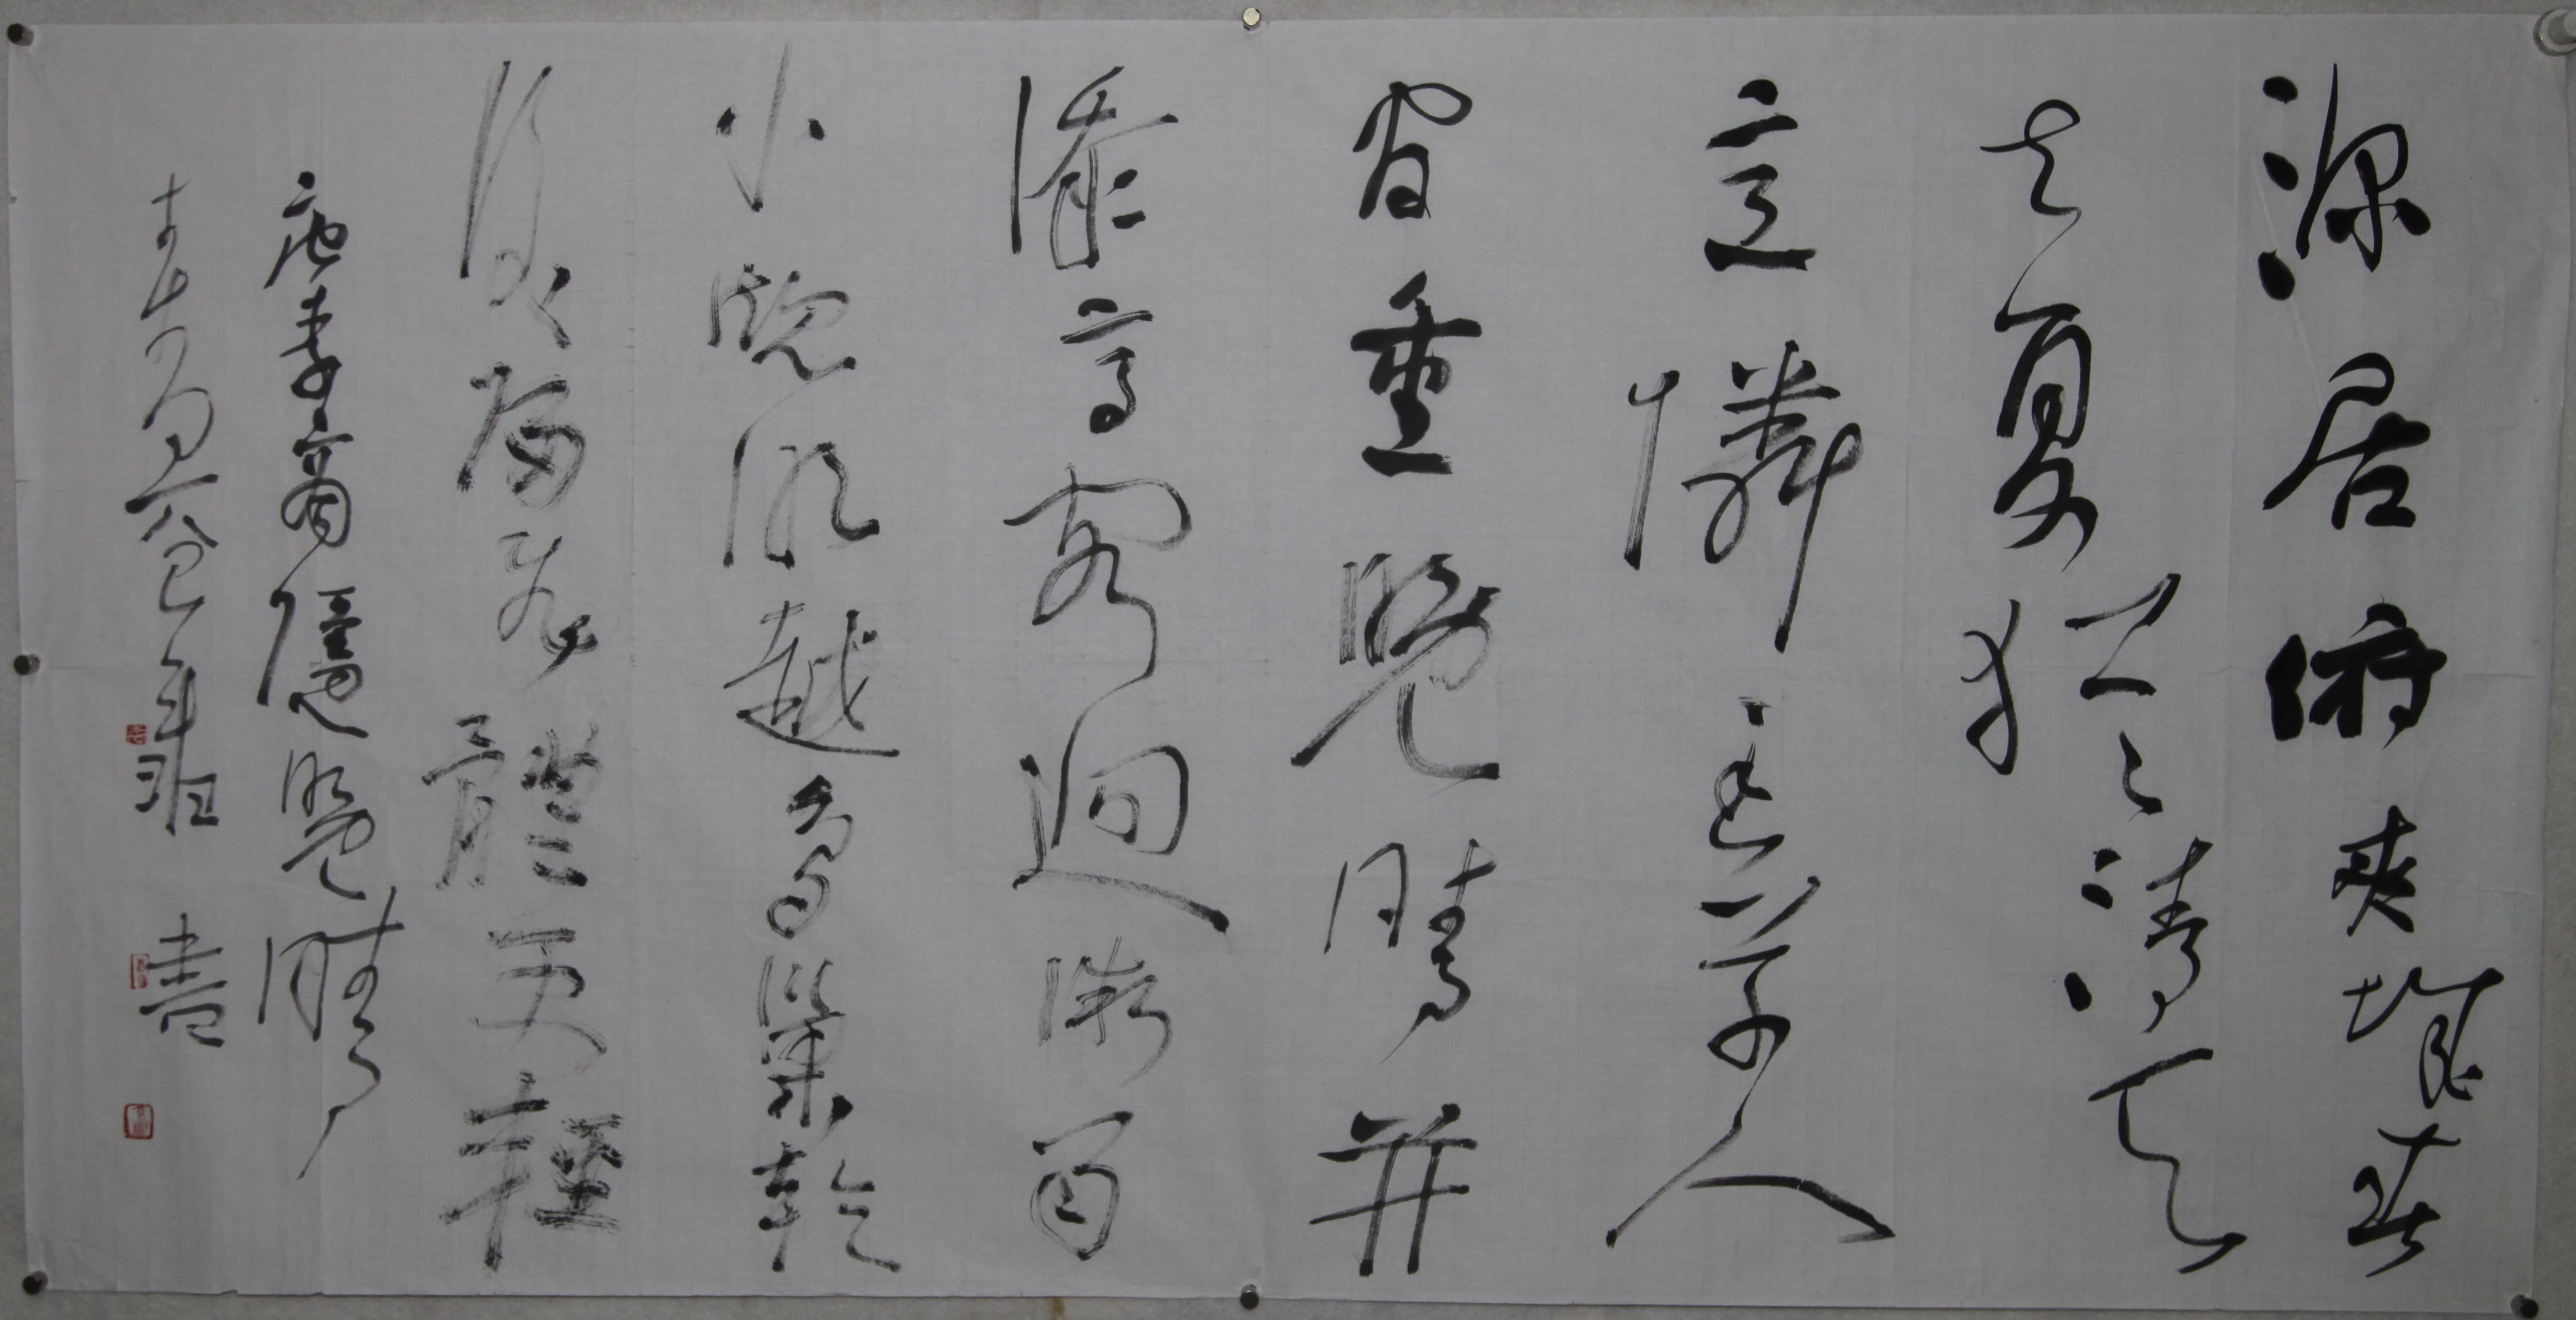 深居俯夾城春
去夏猶清天
意憐幽草人
間重晚晴并
添高閣迥微
小窗明越鳥巢乾
後歸飛體更輕
唐李商隱晚晴
書